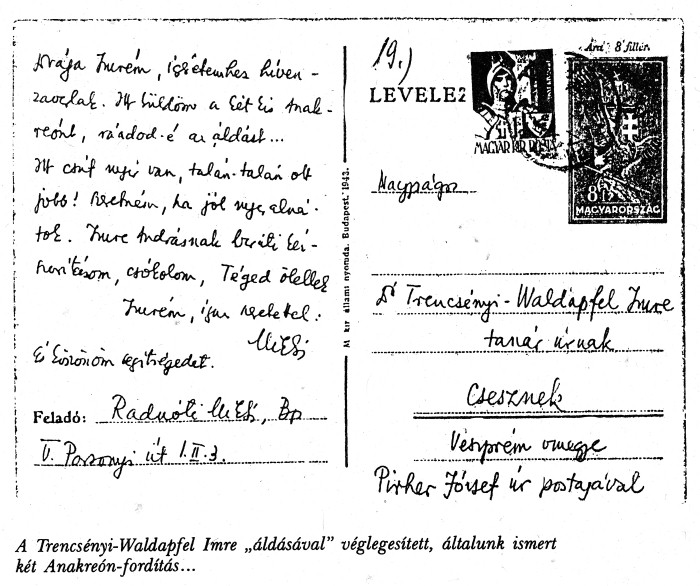 Drága Imrém, ígéretemhez híven-
küldöm a két kis Anak-
reónt, ráadod-é az áldást...
Itt csúf nyár van, talán-talán ott
jobb! Szeretném, ha jól nyaralná-
tok. Imre Andrásnak baráti kéz-
szorításom, csókolom, Téged ölellek
Imrém, igaz szeretettel:
Miklós
És köszönöm segítségedet.
Feladó: Radnóti Miklós, Bp
V. Pozsonyi út 1. II. 3.
M. kir. állami nyomda. Budapest, 1943.
19.)
LEVELEZ
Ára 8 fillér
MAGYAR KIR. POSTA
MAGYARORSZÁG
Nagyságos
Dr Trencsényi-Waldapfel Imre
tanár úrnak
Csesznek
Veszprém vmegye
Pirher József úr postájával
A Trencsényi-Waldapfel Imre „áldásával” véglegesített, általunk ismert
két Anakreón-fordítás...